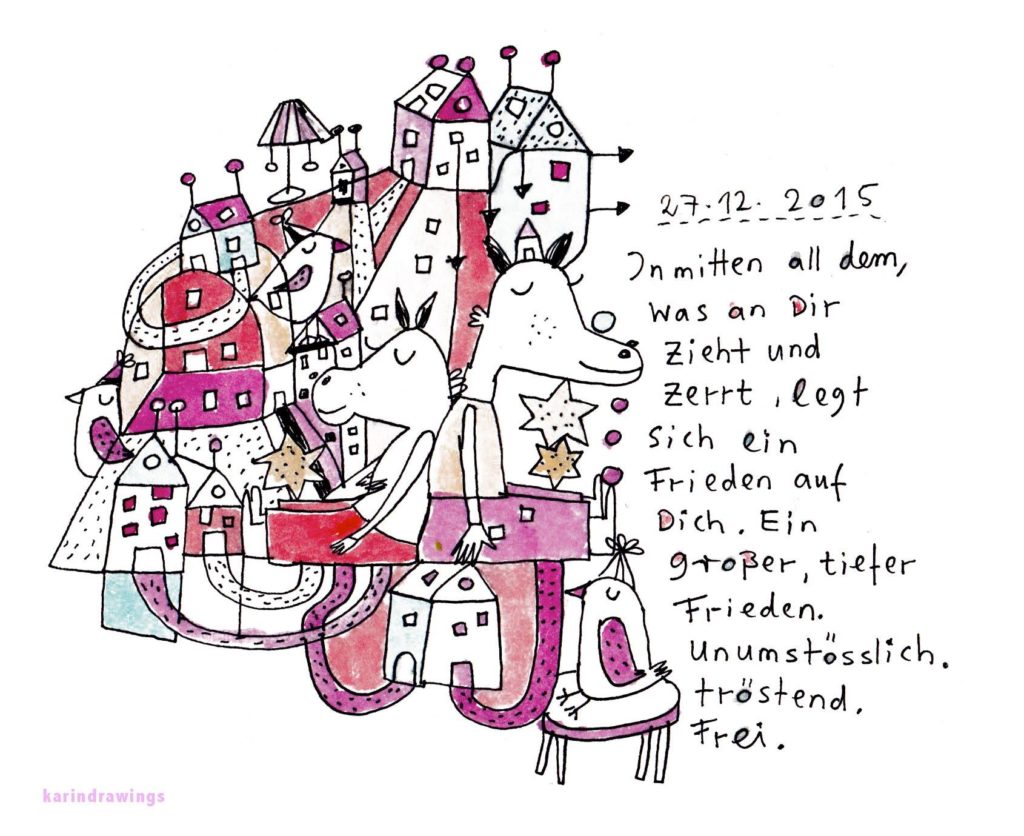 27.12. 2015
Inmitten all dem,
was an Dir
zieht und
zerrt, legt
sich ein
Frieden auf
Dich. Ein
großer, tiefer
Frieden.
Unumstösslich.
tröstend.
Frei.
karindrawings